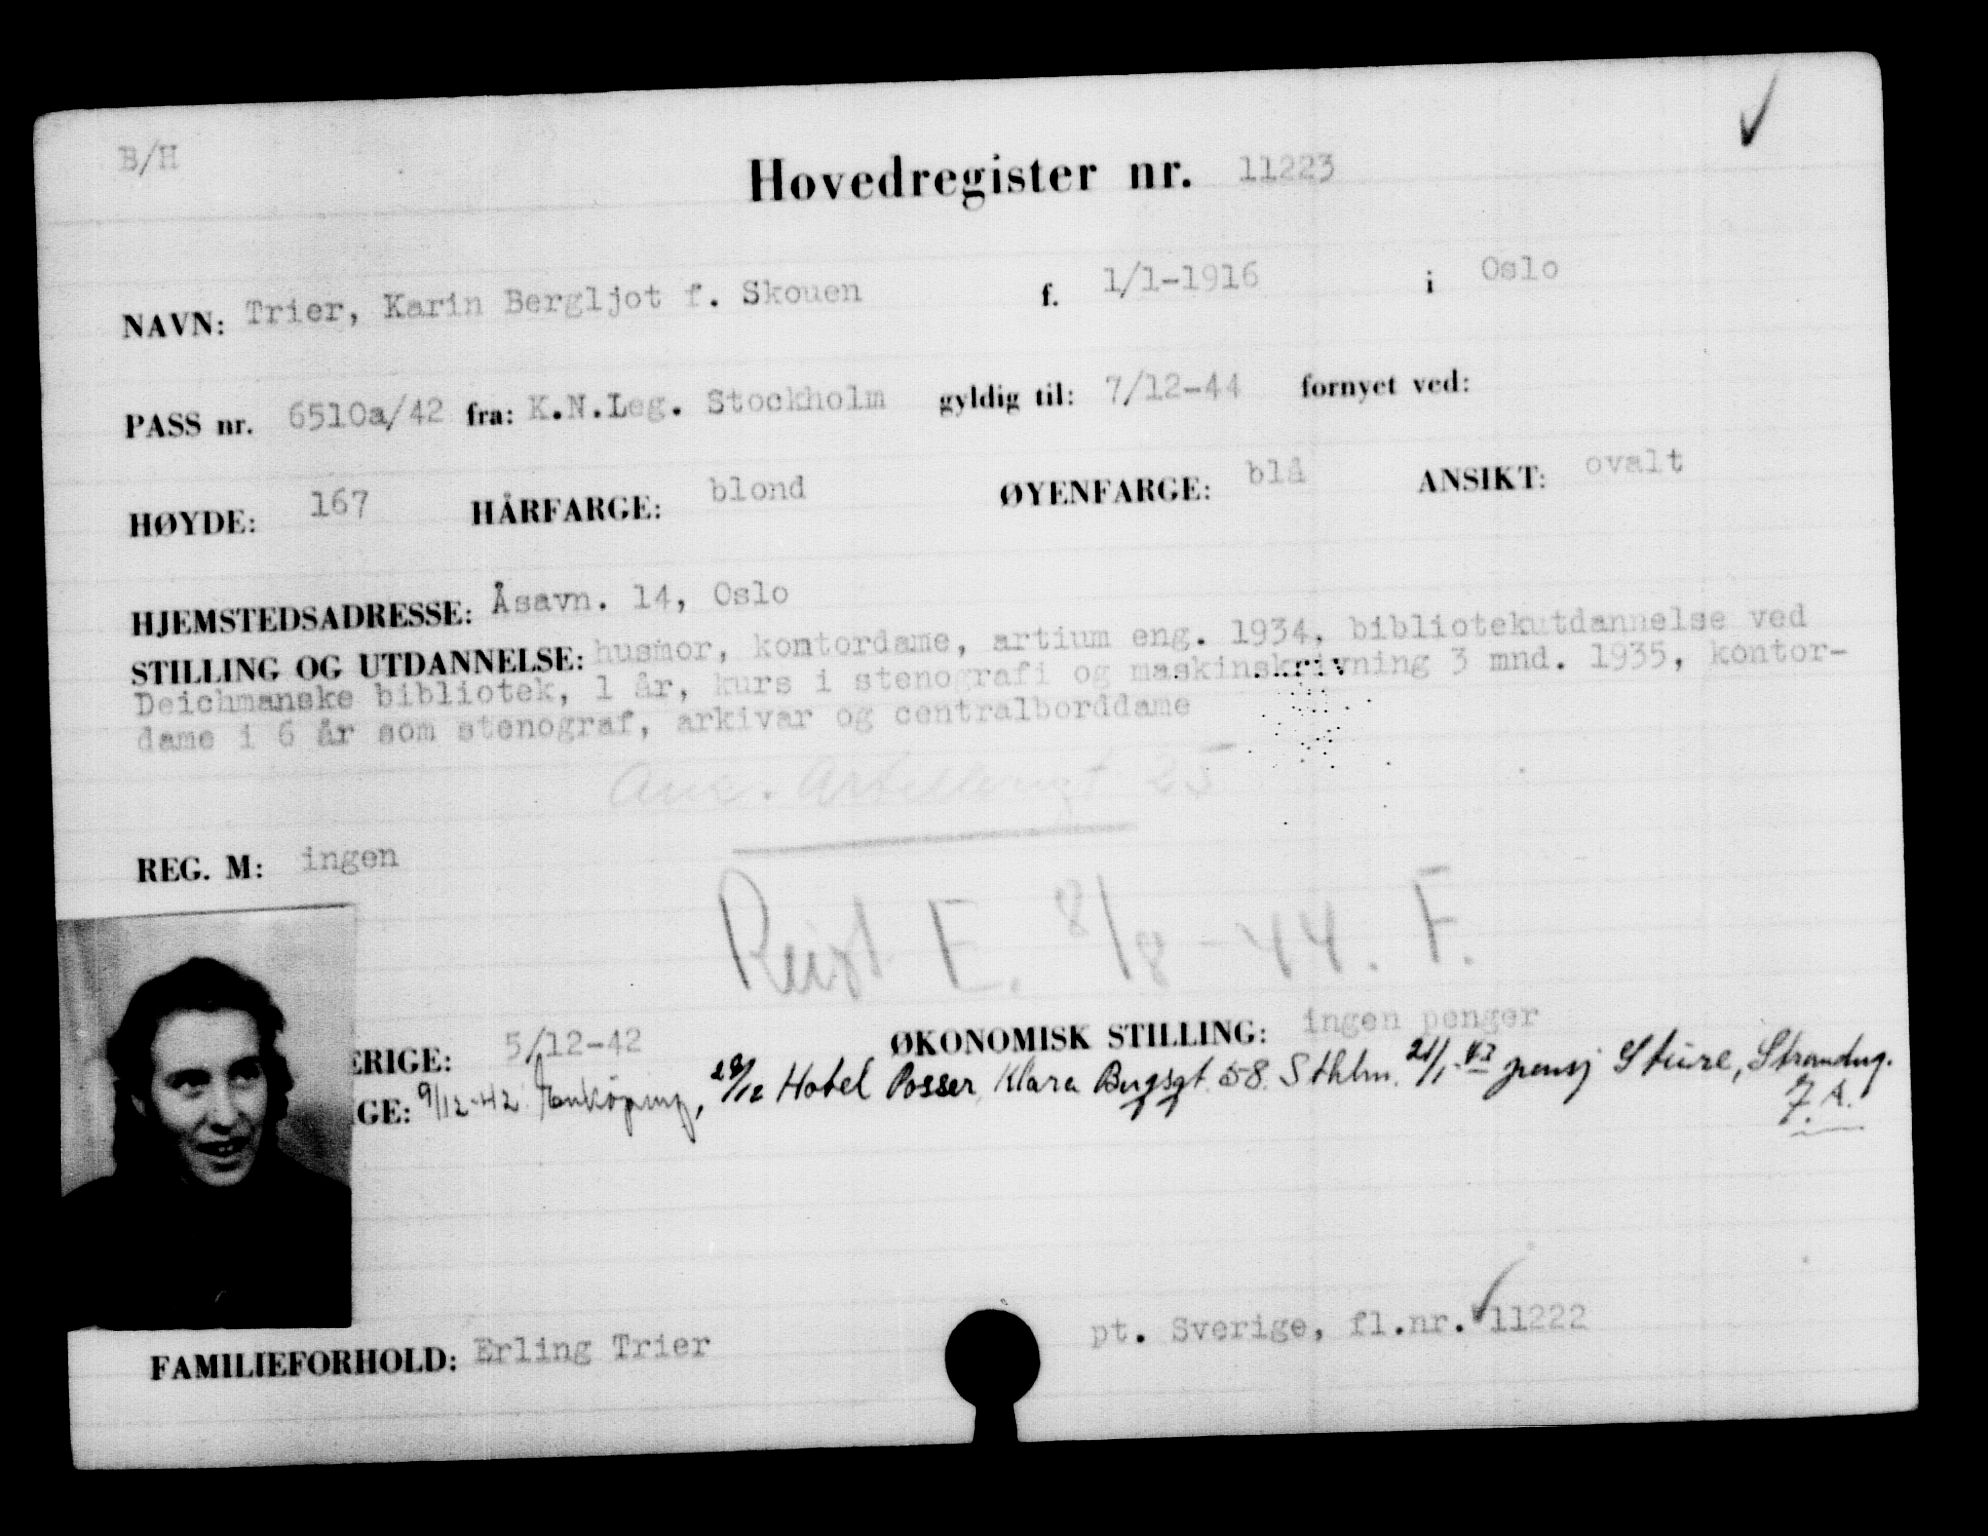 B/H
Hovedregister nr. 11223
NAVN: Trier, Karin Bergljot f. Skouen f. 1/1-1916 i Oslo
PASS nr. 6510a/42 fra: K.N.Leg. Stockholm gyldig til: 7/12-44 fornyet ved:
HØYDE: 167 HÅRFARGE: blond ØYENFARGE: blå ANSIKT: ovalt
HJEMSTEDSADRESSE: Åsavn. 14, Oslo
STILLING OG UTDANNELSE: husmor, kontordame, artium eng. 1934, bibliotekutdannelse ved
Deichmanske bibliotek, 1 år, kurs i stenografi og maskinskrivning 3 mnd. 1935, kontor-
dame i 6 år som stenograf, arkivar og centralborddame
25
REG. M: ingen
Reist E. 8/8-44. F.
ERIGE: 5/12-42 ØKONOMISK STILLING: ingen penger
GE: 9/12-42 Enköping, 28/12 Hotel Posser, Klara Bergsgt. 58. Sthlm. 21/1- pensj Sture, Strandvg.
7.A.
FAMILIEFORHOLD: Erling Trier pt. Sverige, fl.nr. 11222